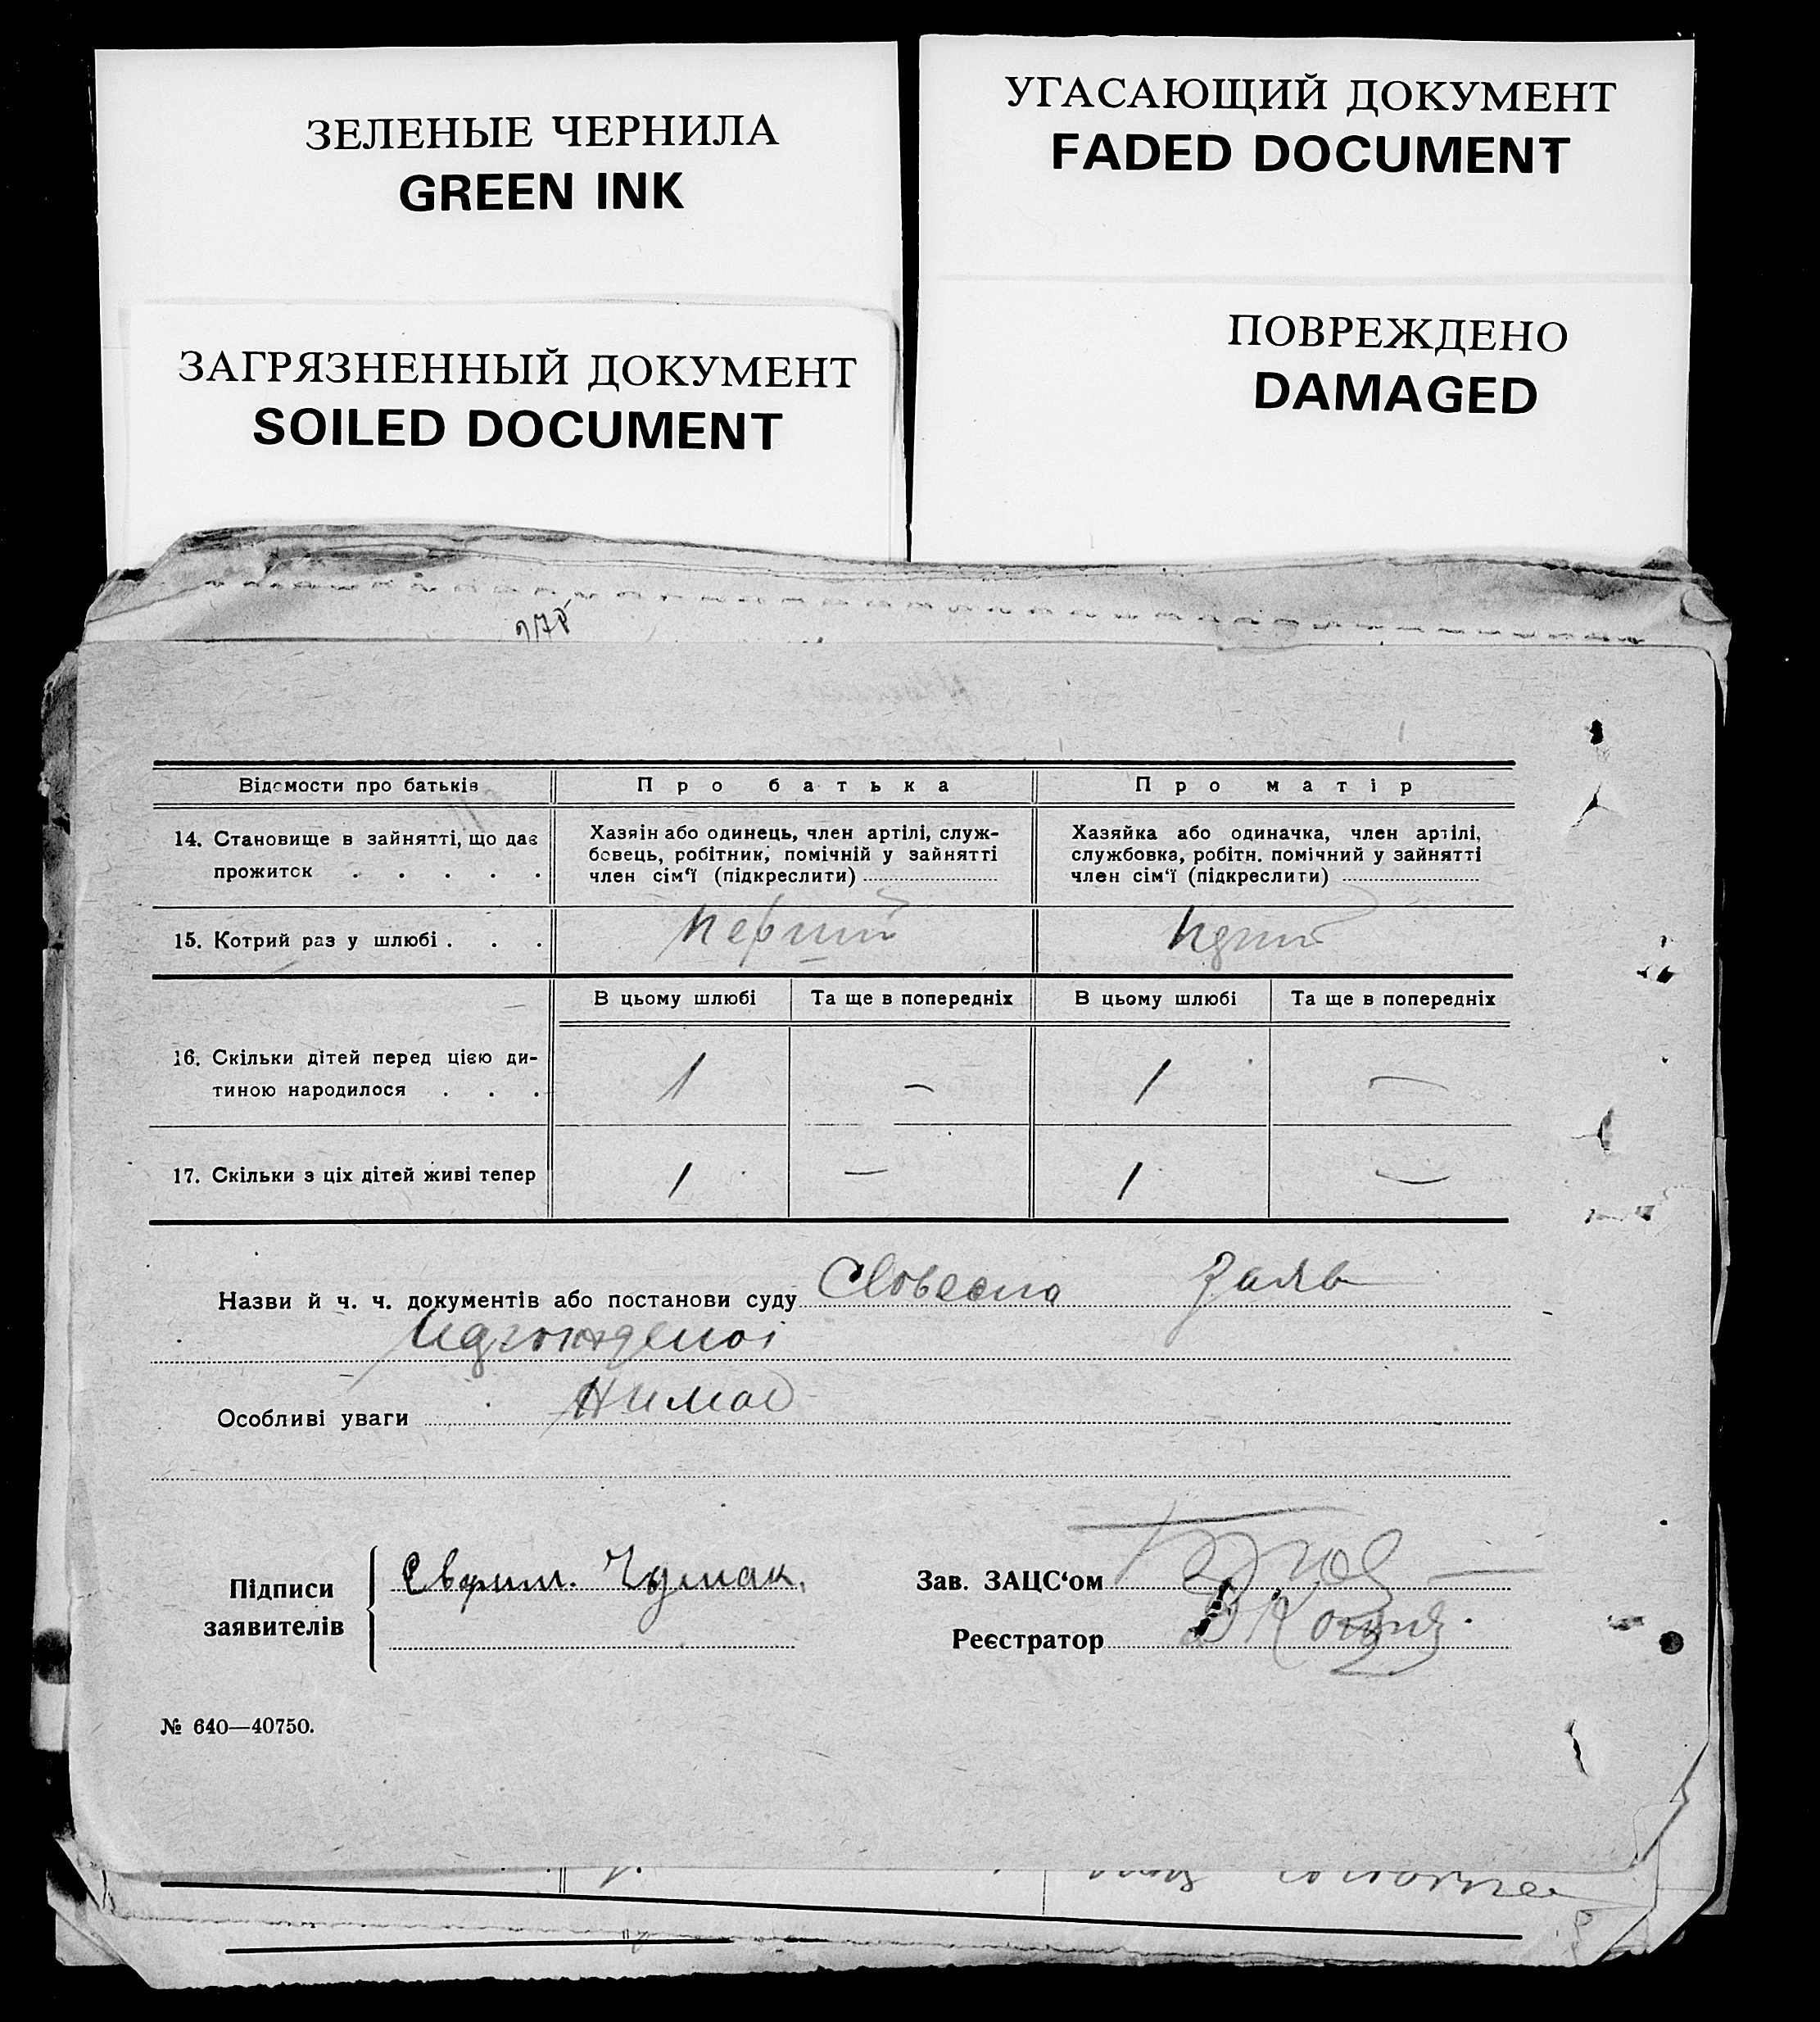 ЗЕЛЕНЫЕ ЧЕРНИЛА
GREEN INK
УГАСАЮЩИЙ ДОКУМЕНТ
FADED DOCUMENT
ЗАГРЯЗНЕННЫЙ ДОКУМЕНТ
SOILED DOCUMENT
ПОВРЕЖДЕНО
DAMAGED
Відомости про батьків Про батька Про матір
14. Становище в зайнятті, що дає прожиток . . . . .
Хазяін або одинець, член артілі, служ-
бовець, робітник, помічній у зайнятті
член сім'ї (підкреслити)
Хазяйка або одиначка, член артілі,
службовка, робітн. помічний у зайнятті
член сім'ї (підкреслити)
15. Котрий раз у шлюбі . . . перший
В цьому шлюбі Та ще в попередніх В цьому шлюбі Та ще в попередніх
16. Скільки дітей перед цією ди-
тиною народилося . . . 1 — 1 —
17. Скільки з ціх дітей живі тепер 1 — 1 —
Назви й ч. ч. документів або постанови суду Словесна Заяв
Особливі уваги Нимає
Підписи
заявителів
Єврим. Чумак.
Зав. ЗАЦС'ом
Реєстратор
№ 640—40750.